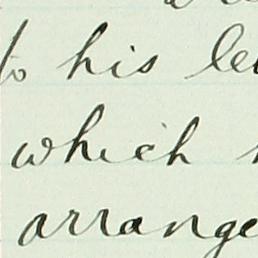 to his
which
arrange